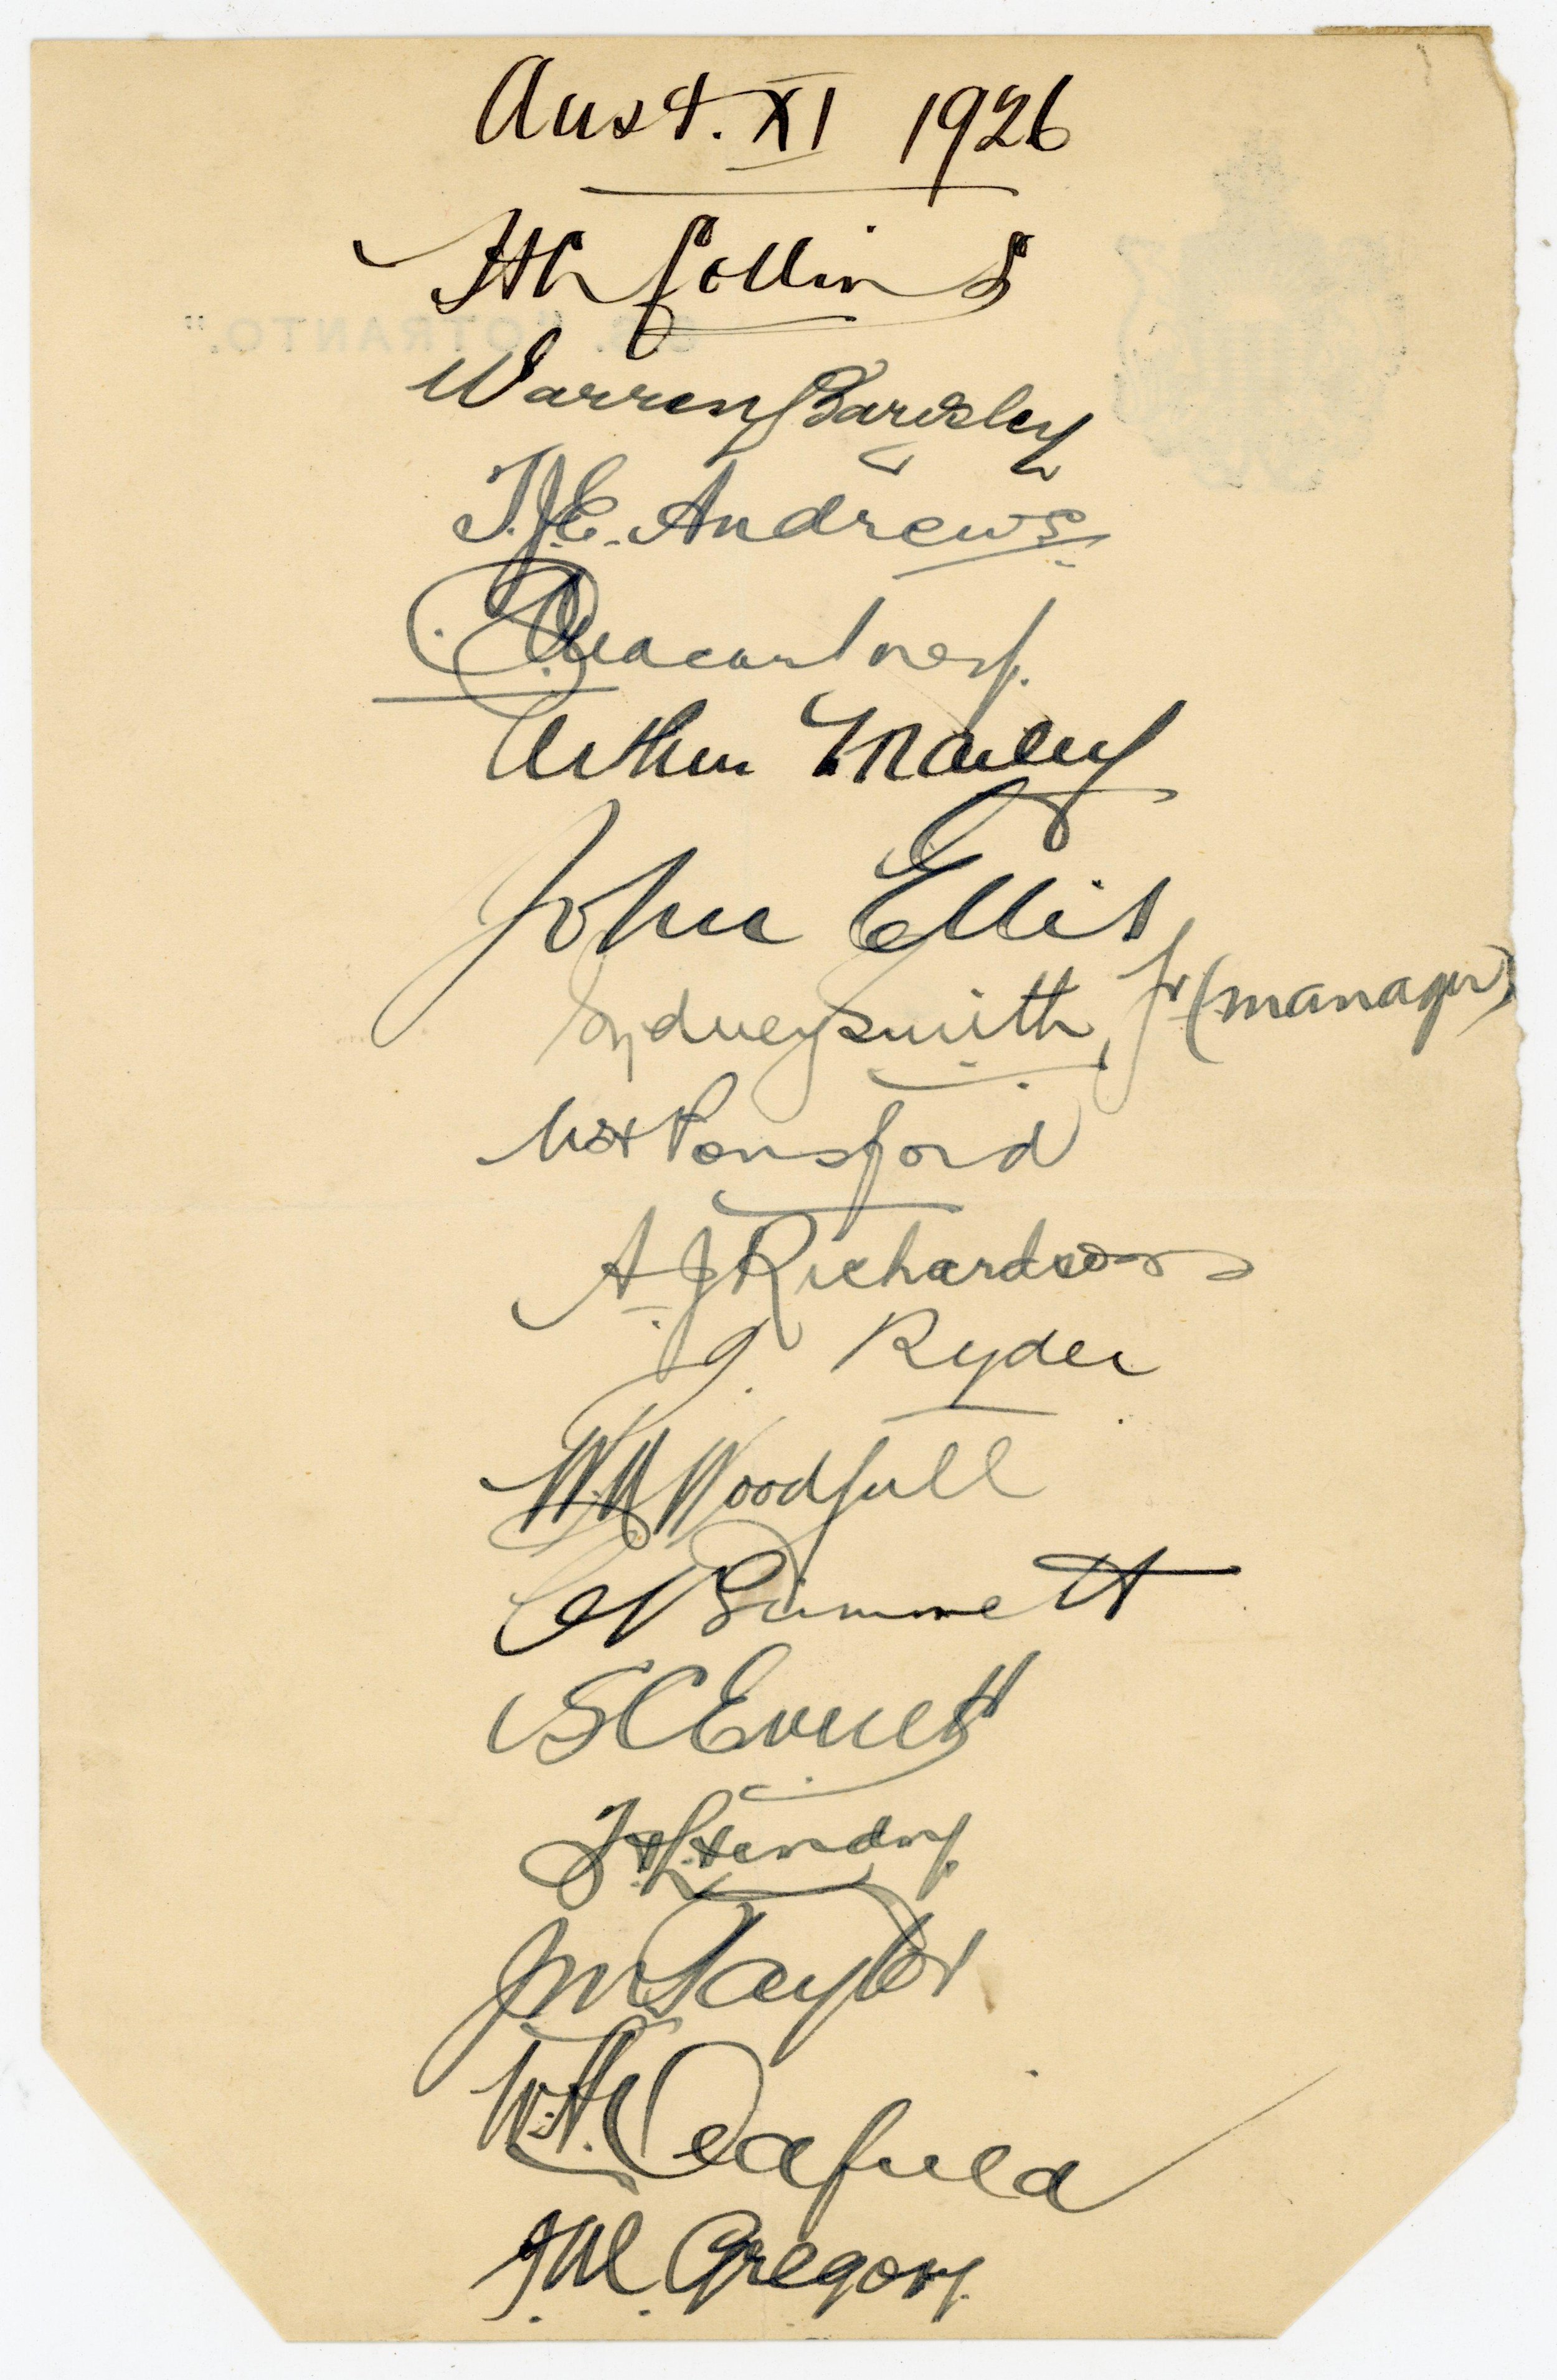 Aust. XI 1926
H L Collins
Warren Bardsley
T.J.E. Andrews
C. G. Macartney.
Arthur Mailey
John Ellis
Sydney Smith, Jr (manager)
W H Ponsford
A J Richardson
J. Ryder
W. M Woodfull
C V Grimmett
S C Everett
H. L. Hendry.
J M Taylor
W. A. Oldfield
J. M. Gregory.
S.S. "OTRANTO."